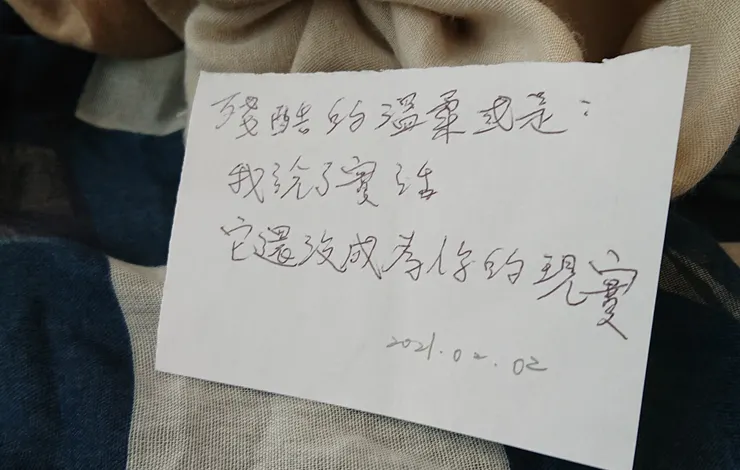 殘酷的溫柔或是：
我說了實話
它還沒成為你的現實
2021.02.02